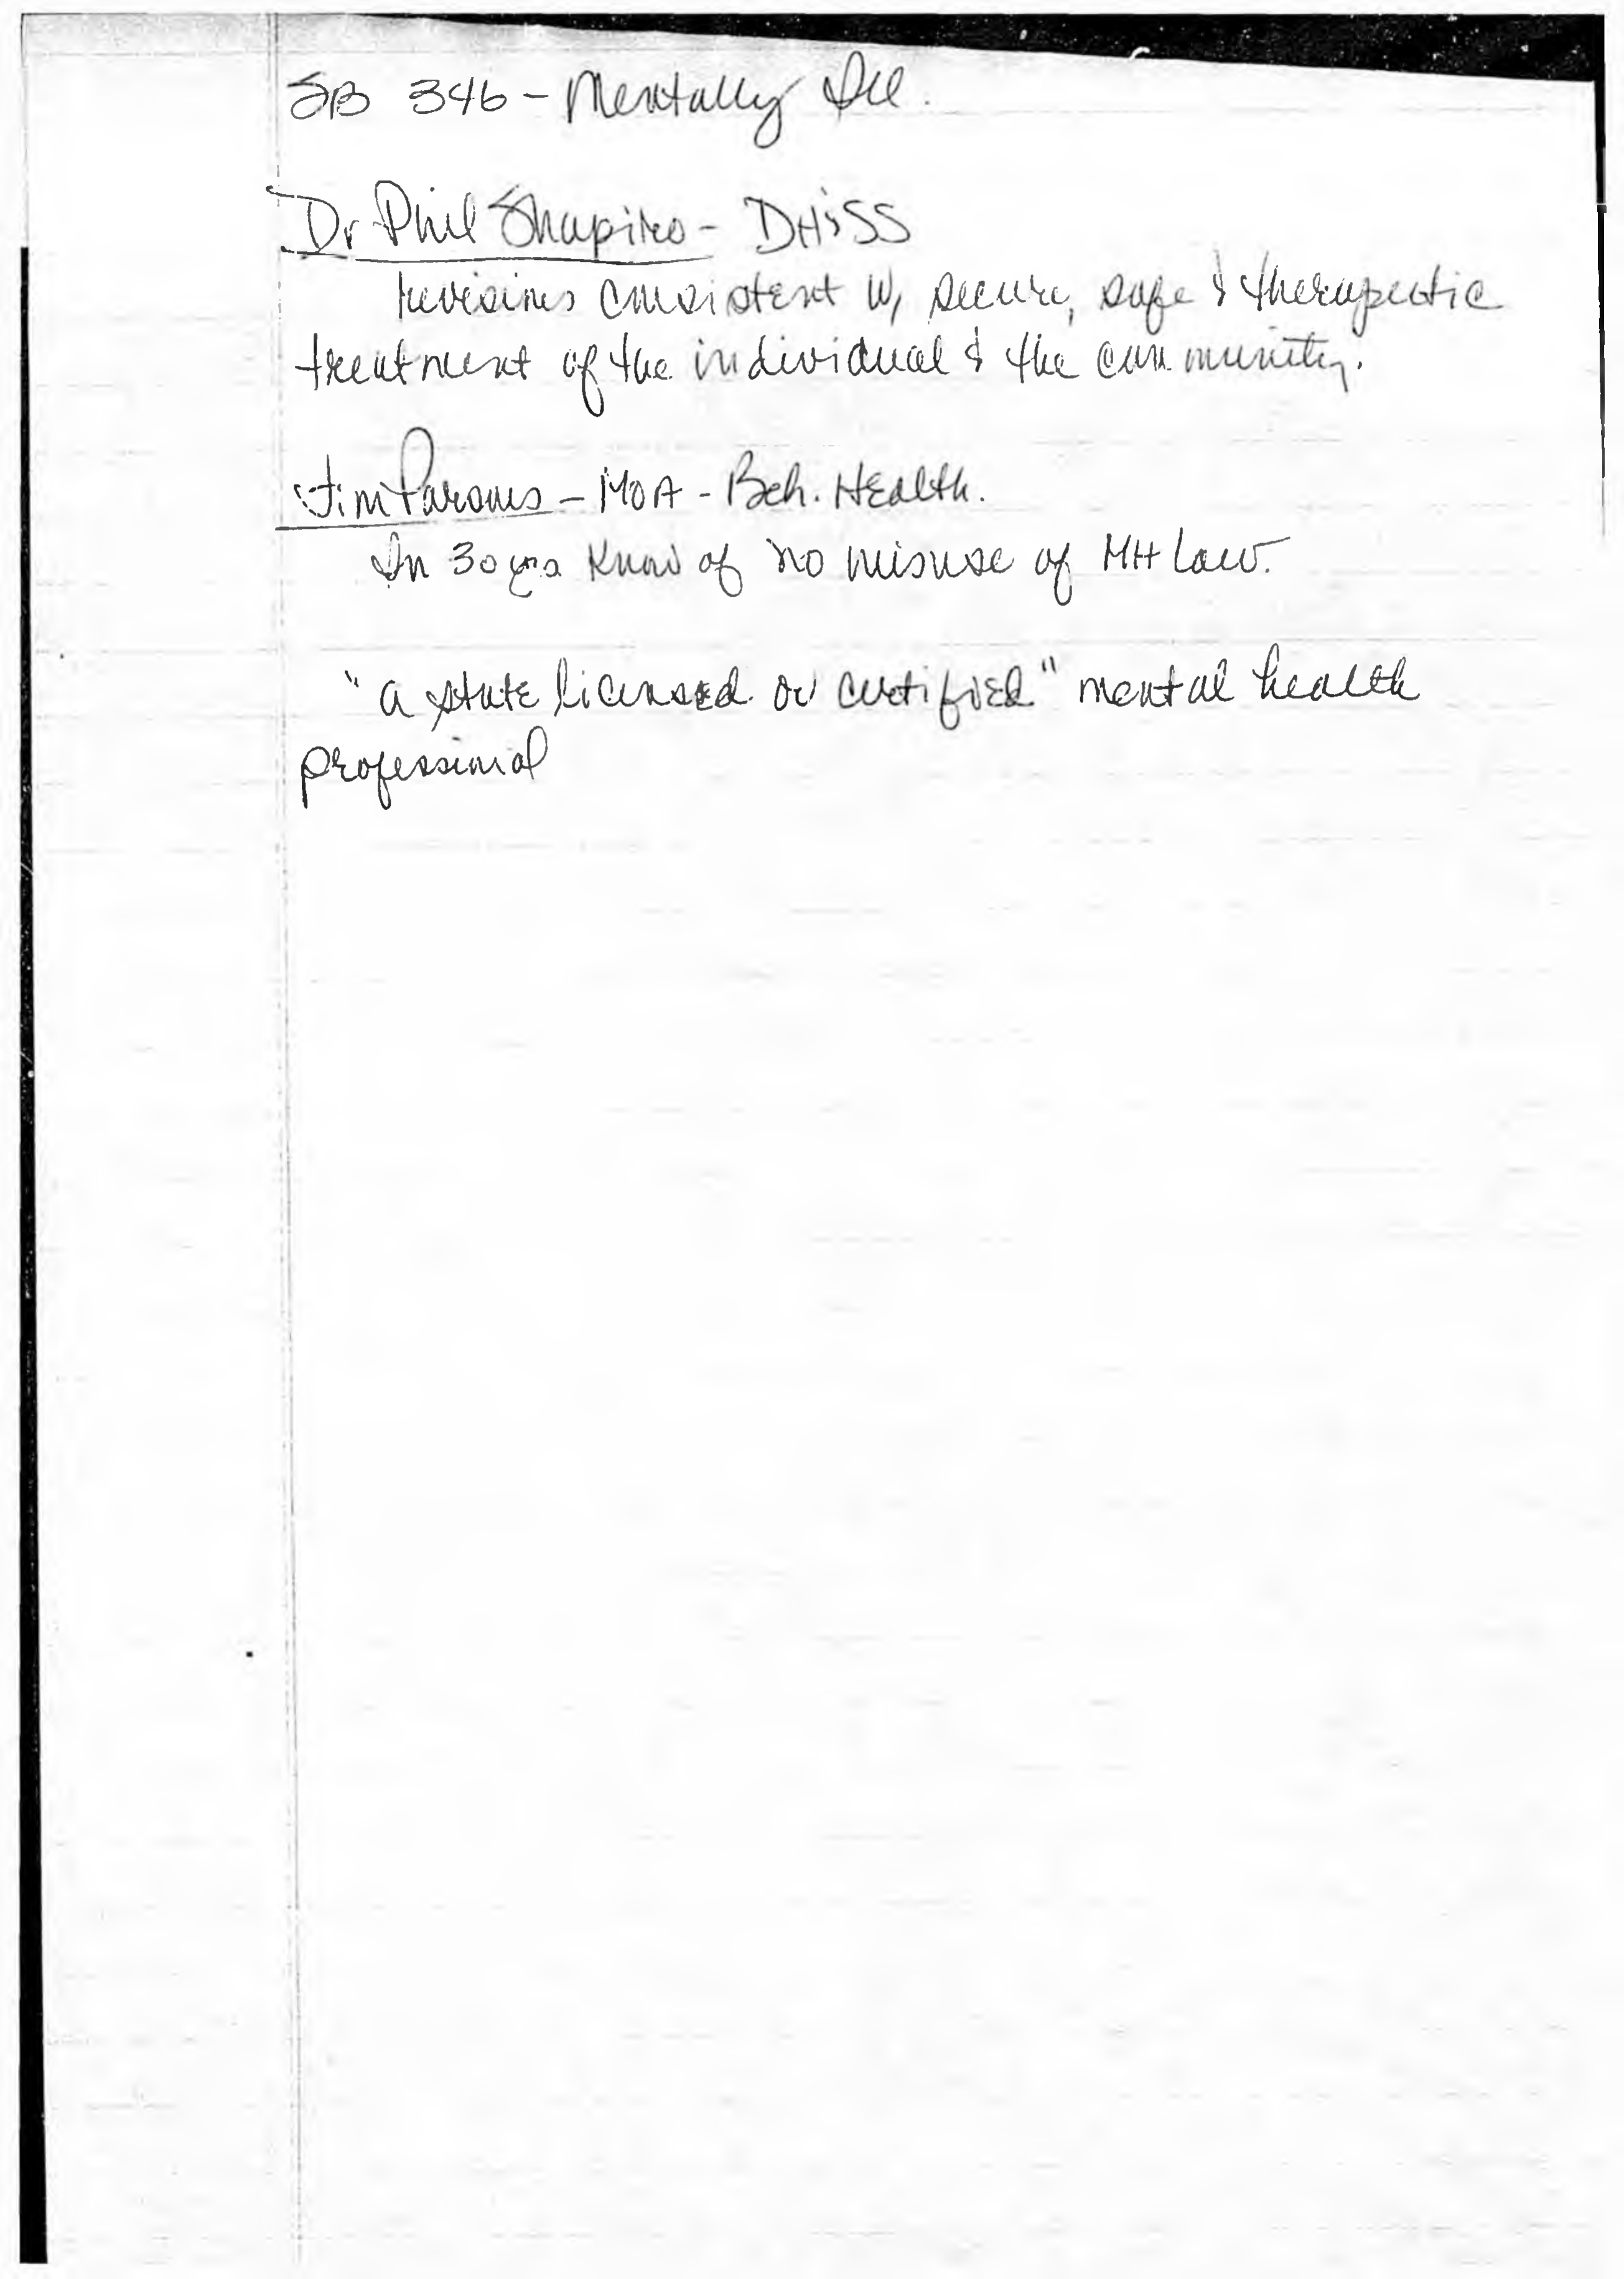 SB 346 - Mentally Ill.
Dr Phil Shapiro - DH&SS
revisions consistent w/ secure, safe & therapeutic
treatment of the individual & the community.
Jim Parsons - MOA - Beh. Health.
In 30 yrs know of no misuse of MH law.
"a state licensed or certified" mental health
professional